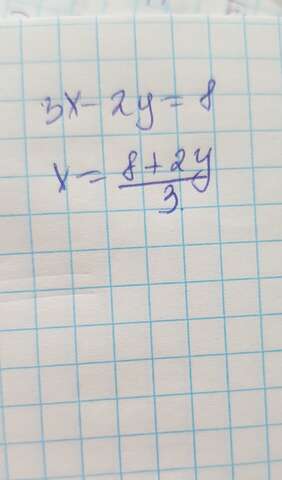 3x - 2y = 8
x = (8 + 2y)/3